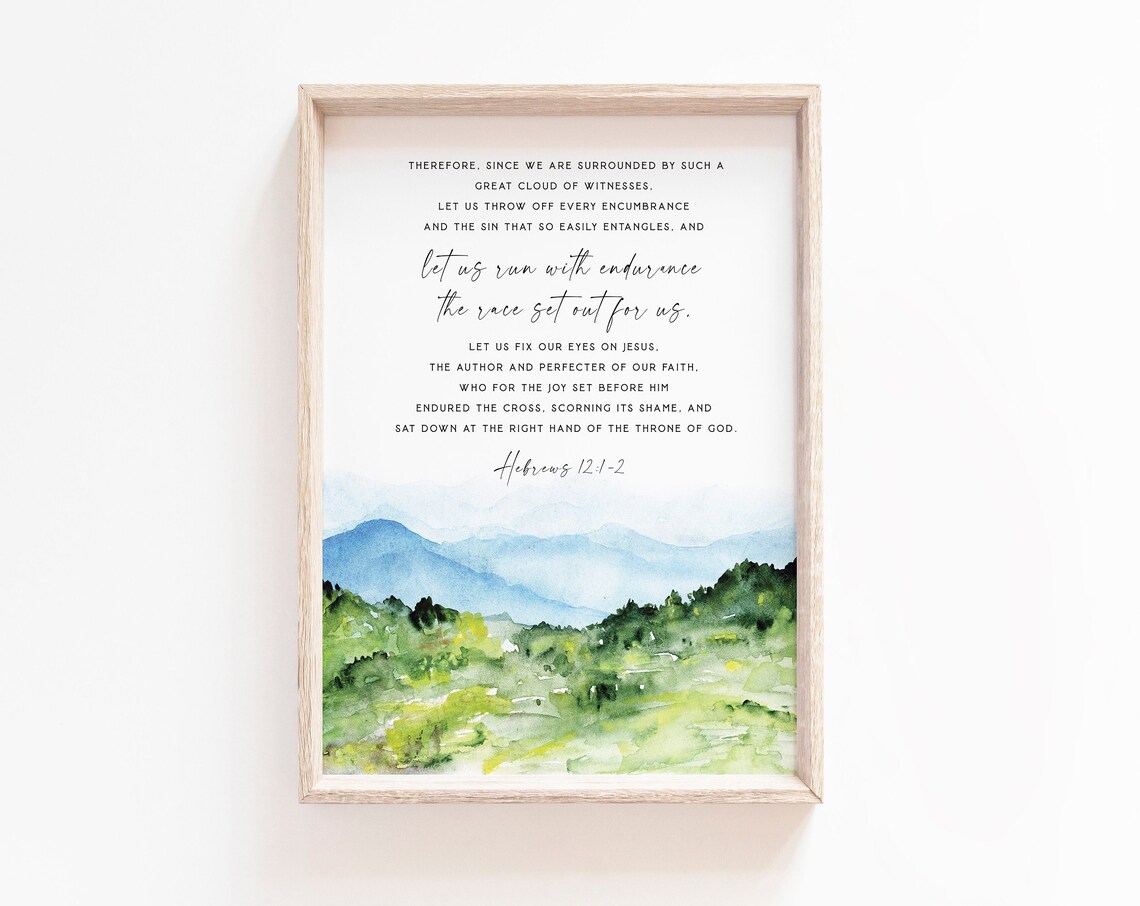 THEREFORE, SINCE WE ARE SURROUNDED BY SUCH A
GREAT CLOUD OF WITNESSES,
LET US THROW OFF EVERY ENCUMBRANCE
AND THE SIN THAT SO EASILY ENTANGLES, AND
let us run with endurance
the race set out for us.
LET US FIX OUR EYES ON JESUS,
THE AUTHOR AND PERFECTER OF OUR FAITH,
WHO FOR THE JOY SET BEFORE HIM
ENDURED THE CROSS, SCORNING ITS SHAME, AND
SAT DOWN AT THE RIGHT HAND OF THE THRONE OF GOD.
Hebrews 12:1-2